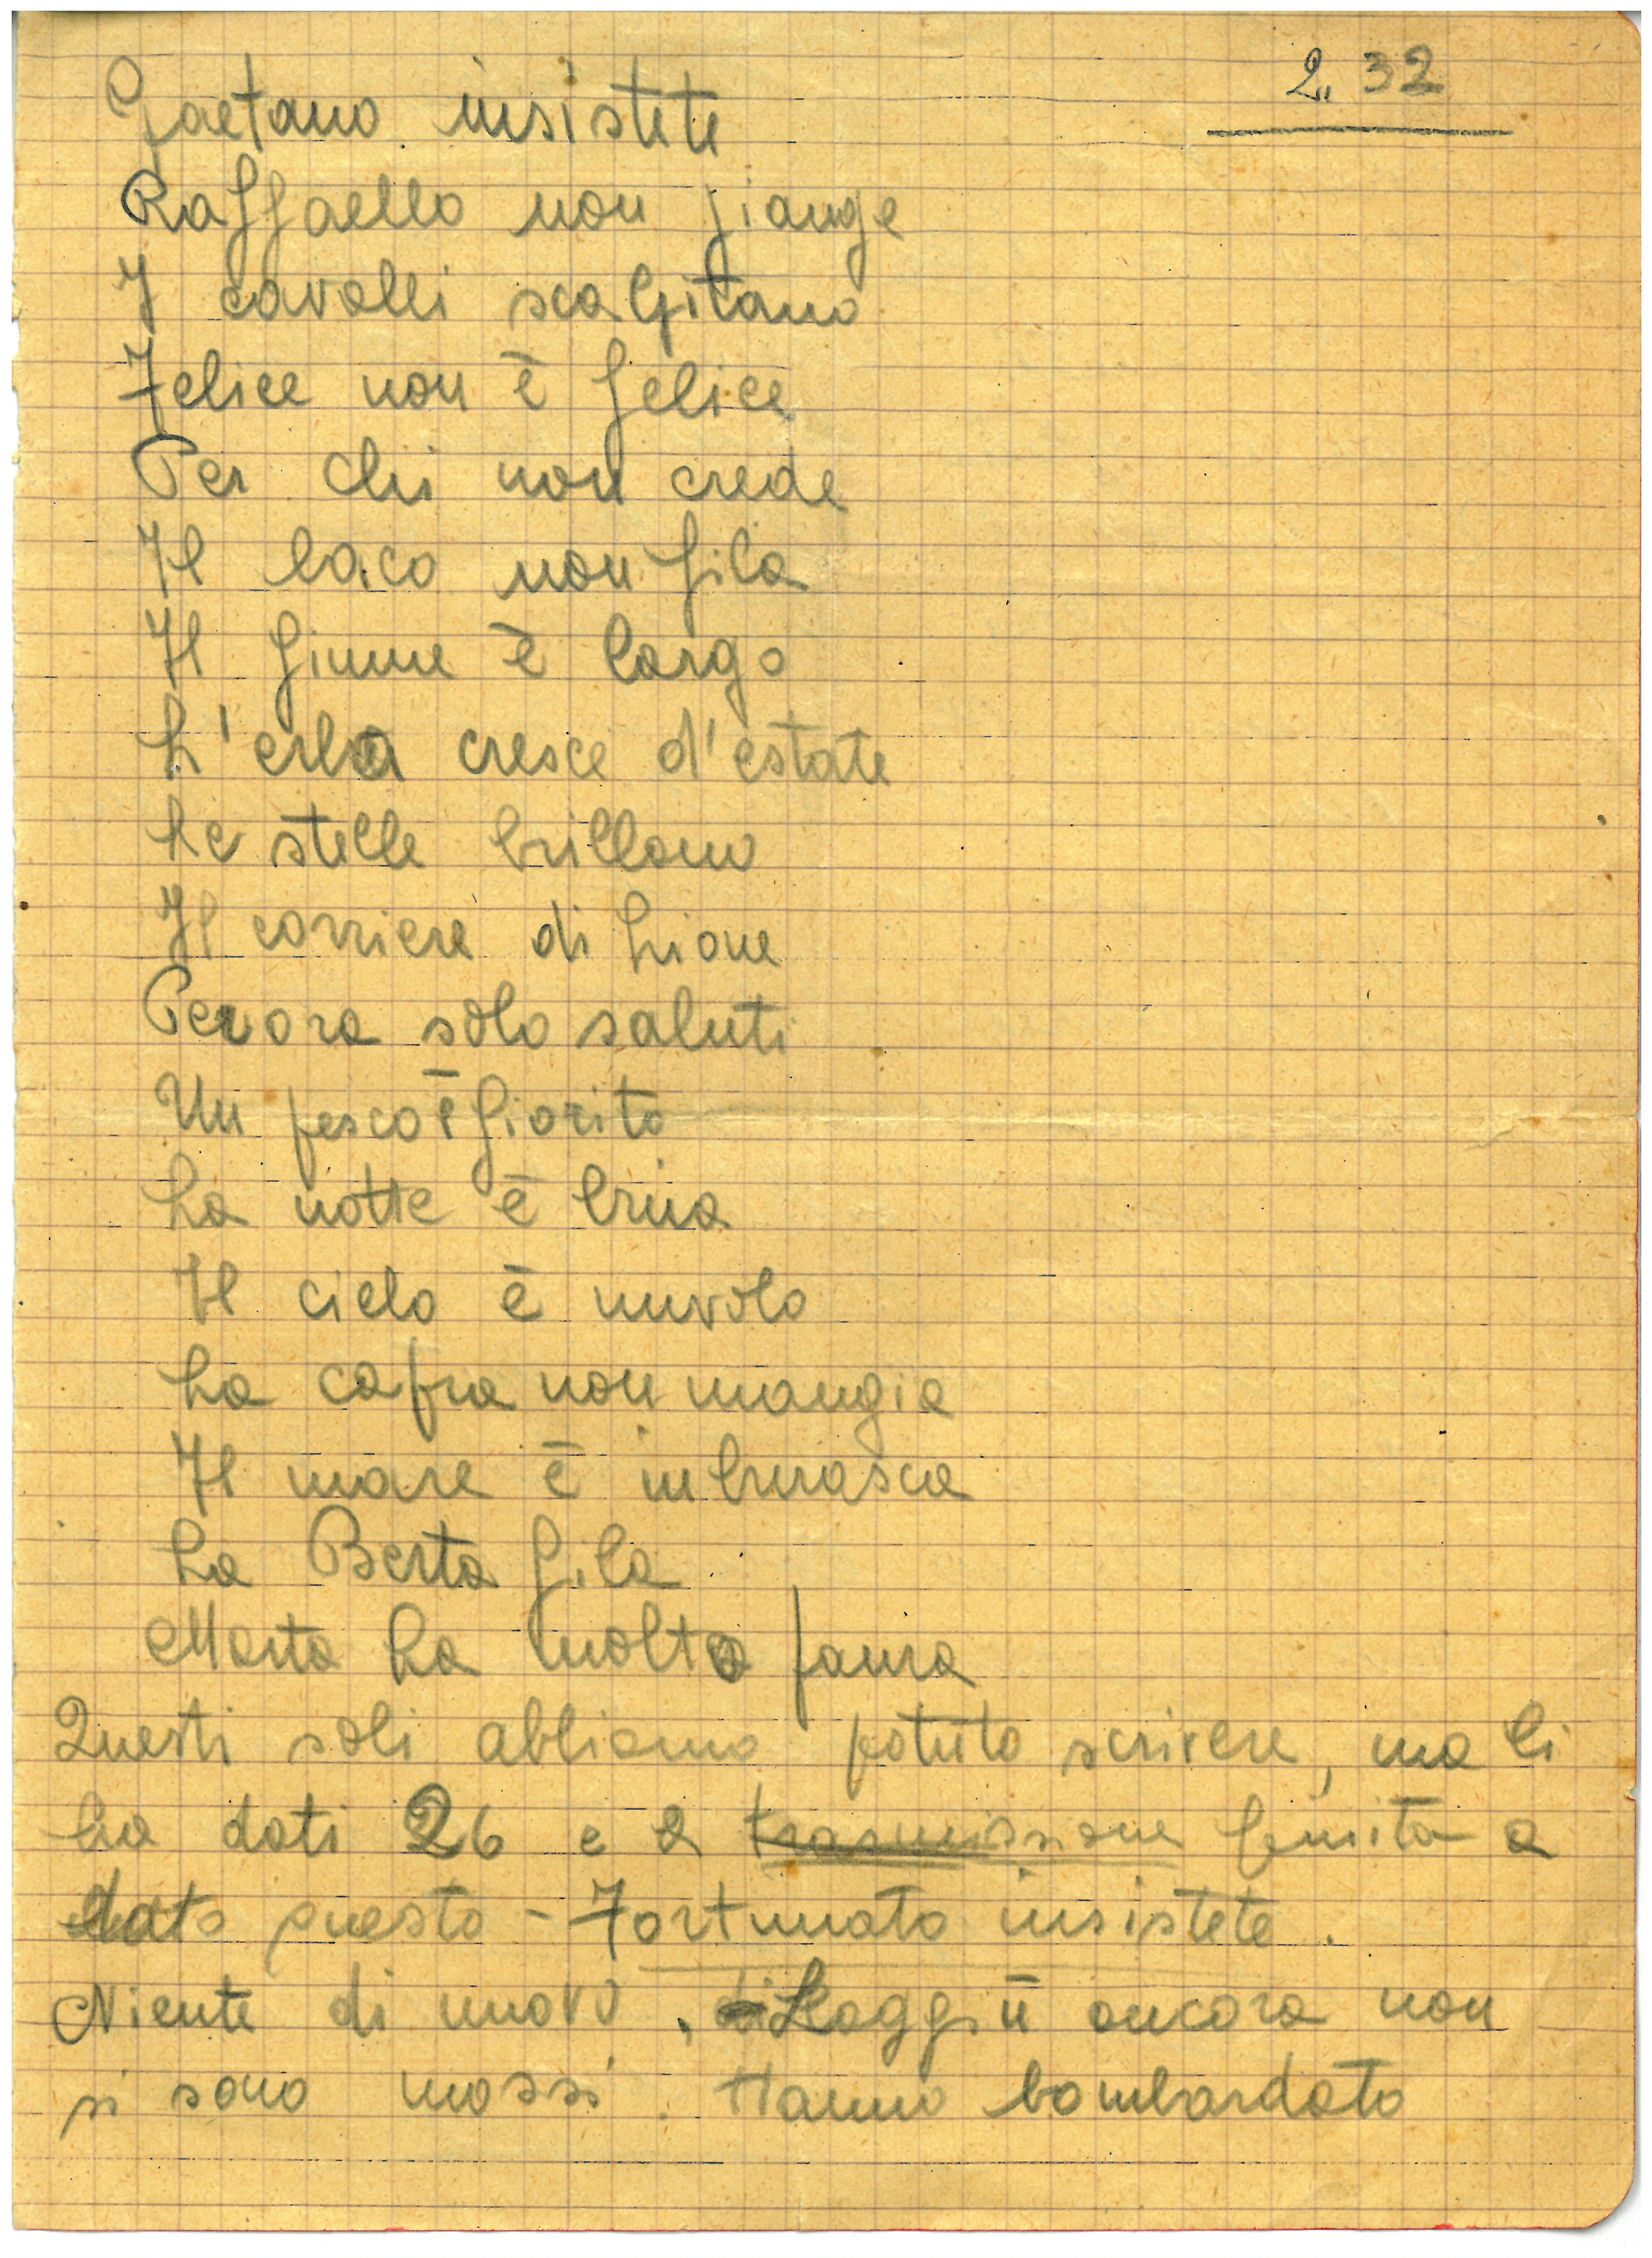 2. 32
Gaetano insistete
Raffaello non piange
I cavalli scalpitano
Felice non è felice
Per chi non crede
Il baco non fila
Il fiume è largo
L'erba cresce d'estate
Le stelle brillano
Il corriere di Lione
Per ora solo saluti
Un pesco è fiorito
La notte è buia
Il cielo è nuvolo
La capra non mangia
Il mare è in burrasca
La Berta fila
Marta ha molta paura
Questi soli abbiamo potuto scrivere, ma li
ha dati 26 e a trasmissione finita a
dato questo - Fortunato insistete.
Niente di nuovo, Laggiù ancora non
si sono mossi. Hanno bombardato